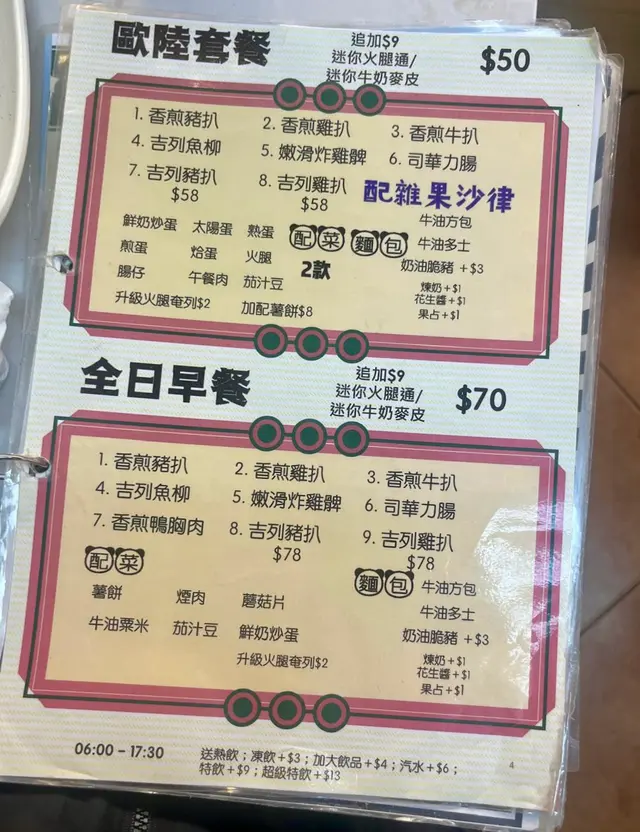 歐陸套餐
追加$9
迷你火腿通/
迷你牛奶麥皮
$50
1. 香煎豬扒
2. 香煎雞扒
3. 香煎牛扒
4. 吉列魚柳
5. 嫩滑炸雞髀
6. 司華力腸
7. 吉列豬扒
$58
8. 吉列雞扒
$58
配雜果沙律
鮮奶炒蛋 太陽蛋 熟蛋
煎蛋 烚蛋 火腿
腸仔 午餐肉 茄汁豆
升級火腿奄列$2
加配薯餅$8
配菜
2款
麵包
牛油方包
牛油多士
奶油脆豬 +$3
煉奶+$1
花生醬+$1
果占+$1
全日早餐
追加$9
迷你火腿通/
迷你牛奶麥皮
$70
1. 香煎豬扒
2. 香煎雞扒
3. 香煎牛扒
4. 吉列魚柳
5. 嫩滑炸雞髀
6. 司華力腸
7. 香煎鴨胸肉
8. 吉列豬扒
$78
9. 吉列雞扒
$78
配菜
薯餅 煙肉 蘑菇片
牛油粟米 茄汁豆 鮮奶炒蛋
升級火腿奄列$2
麵包
牛油方包
牛油多士
奶油脆豬 +$3
煉奶+$1
花生醬+$1
果占+$1
06:00 - 17:30
送熱飲；凍飲+$3；加大飲品+$4；汽水+$6；
特飲+$9；超級特飲+$13
4